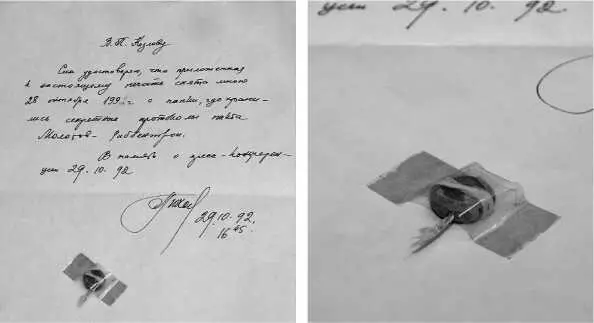 В. П. Козлову
Сим удостоверяю, что приложенная
к настоящему печать снята мною
28 октября 1992 г с папки, где храни-
лись секретные протоколы пакта
Молотов - Риббентроп.
В память о пресс-конферен-
ции 29.10.92
29.10.92.
16 45
ции 29.10.92